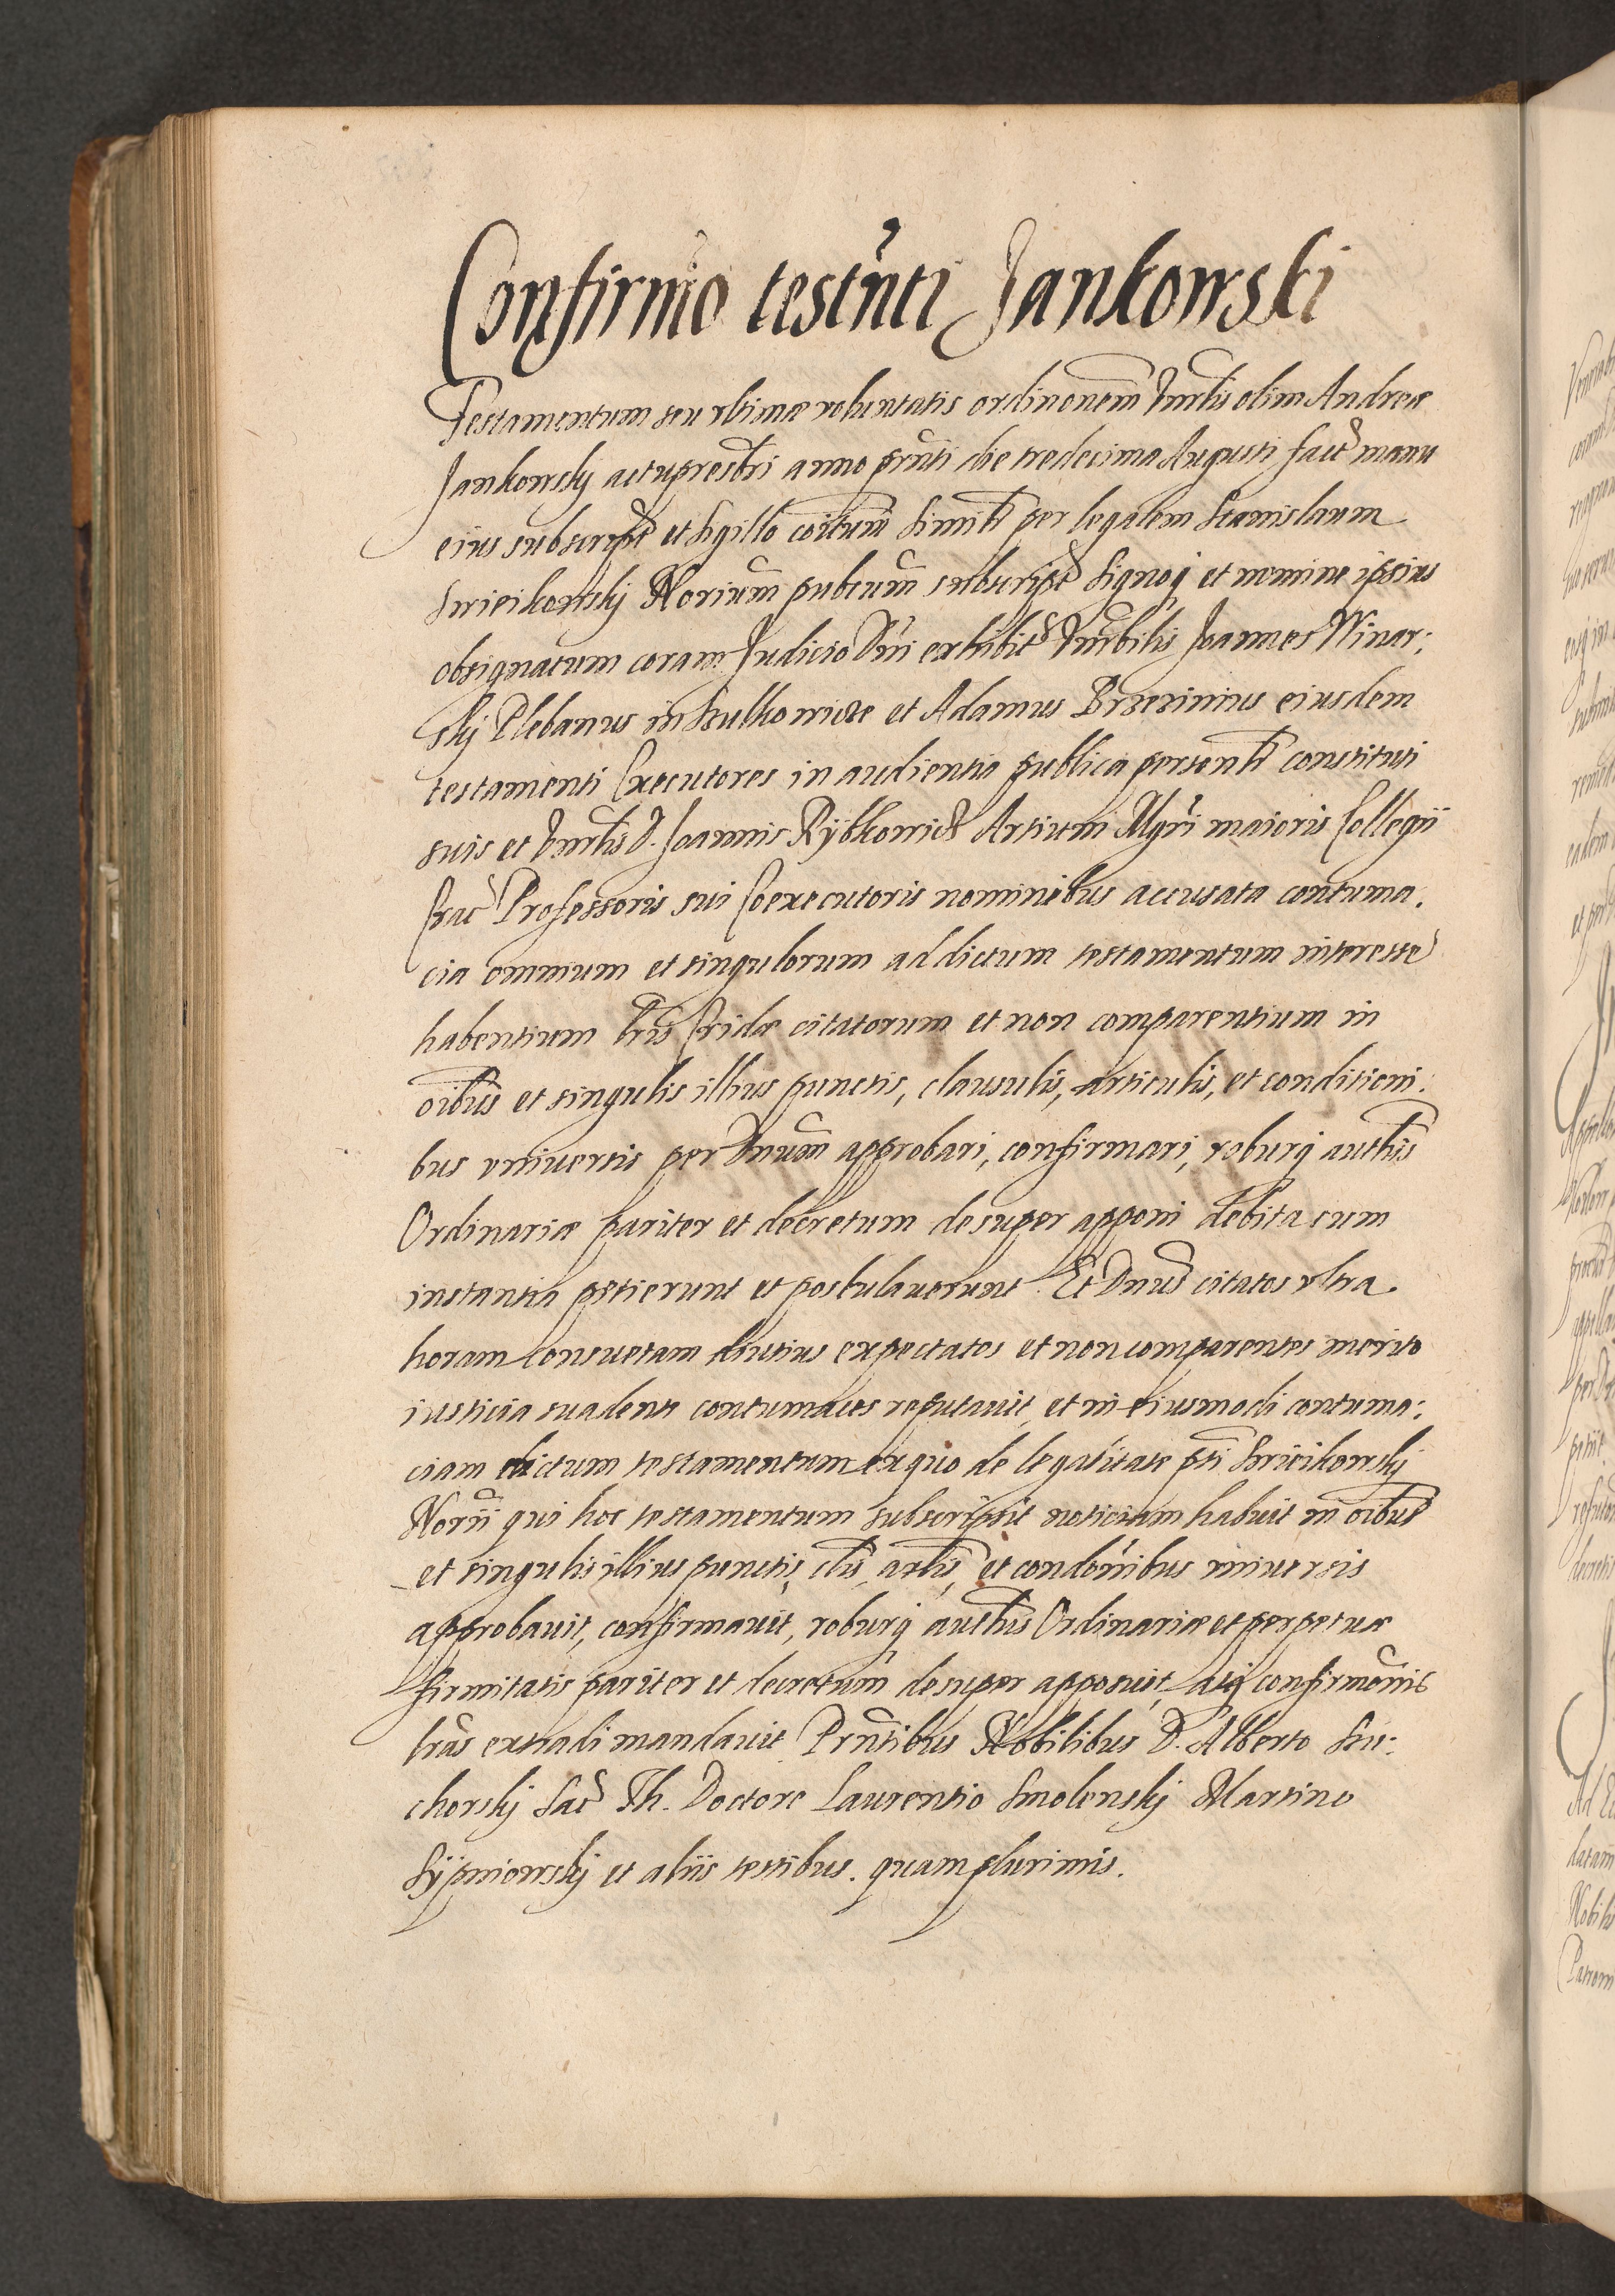 Confirmo testnti Jankowski
Testamentum seu vltimæ voluntatis ordinonem Vnrlis olim Andreæ
Jankowskj actu presbri anno prnti die tredecima Augusti fact manu
eius subscript et sigillo coitum simitr per legalem Stanislaum
Swieikowskj Norium publcum subscript signoq et nomine ipsius
obsignatum coram Judicio Dni exhibit Vnrbilis Joannes Winar:
skj Plebanus in Sulkowice et Adamus Brzezinius eiusdem
testamenti Executores in audientia publica personlr constituti
suis et Vnrlis D. Joannis Rybkowicz Artium Mgri maioris Collegii
Crac Professoris sui Coexecutoris nominibus accusata contuma:
cia omnium et singulorum ad dictum testamentum interesse
habentium lris Cridæ citatorum et non comparentium in
oibus et singulis illius punctis, clausulis, articulis, et conditioni:
bus vniuersis per Dnum approbari, confirmari, roburq authis
Ordinariæ pariter et decretum desuper apponi debita cum
instantia petierunt et postulauerunt. Et Dnus citatos vltra
horam consuetam diutius expectatos et non comparentes merito
iusticia suadente contumaces reputauit, et in eiusmodi contuma:
ciam dictum testamentum ex quo de legalitate pti Swieikowskj
Norii qui hoc testamentum subscripsit noticiam habuit in oibus
et singulis illius punctis, clis, artlis, et condonibus vniuersis
approbauit, confirmauit, roburq authis Ordinariæ et perpetuæ
firmitatis pariter et decretum desuper apposuit, atq confirmonis
lras extradi mandauit. Prntibus Nobilibus D. Alberto Su:
chorskj Sac Th. Doctore Laurentio Smolenskj Martino
Sypniowskj et aliis testibus quamplurimis.